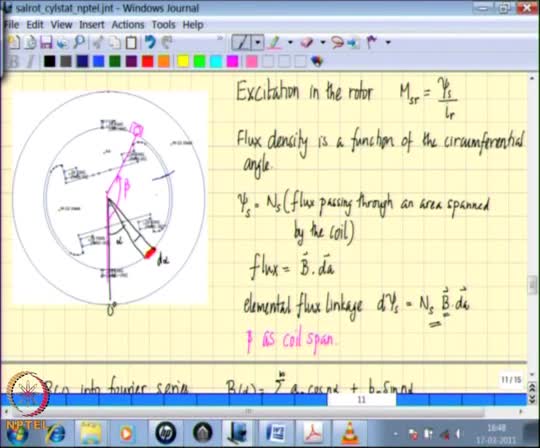 salrot_cylstat_nptel.jnt - Windows Journal
File Edit View Insert Actions Tools Help
Excitation in the rotor Msr = ψs / ir
Flux density is a function of the circumferential
angle.
ψs = Ns (flux passing through an area spanned
by the coil)
flux = B . da
elemental flux linkage dψs = Ns B . da
β as coil span.
β
α
dα
0°
into fourier series B(α) = Σ an cosnα + bn sinnα
11 / 15
11
NPTEL
16:48
17-03-2011